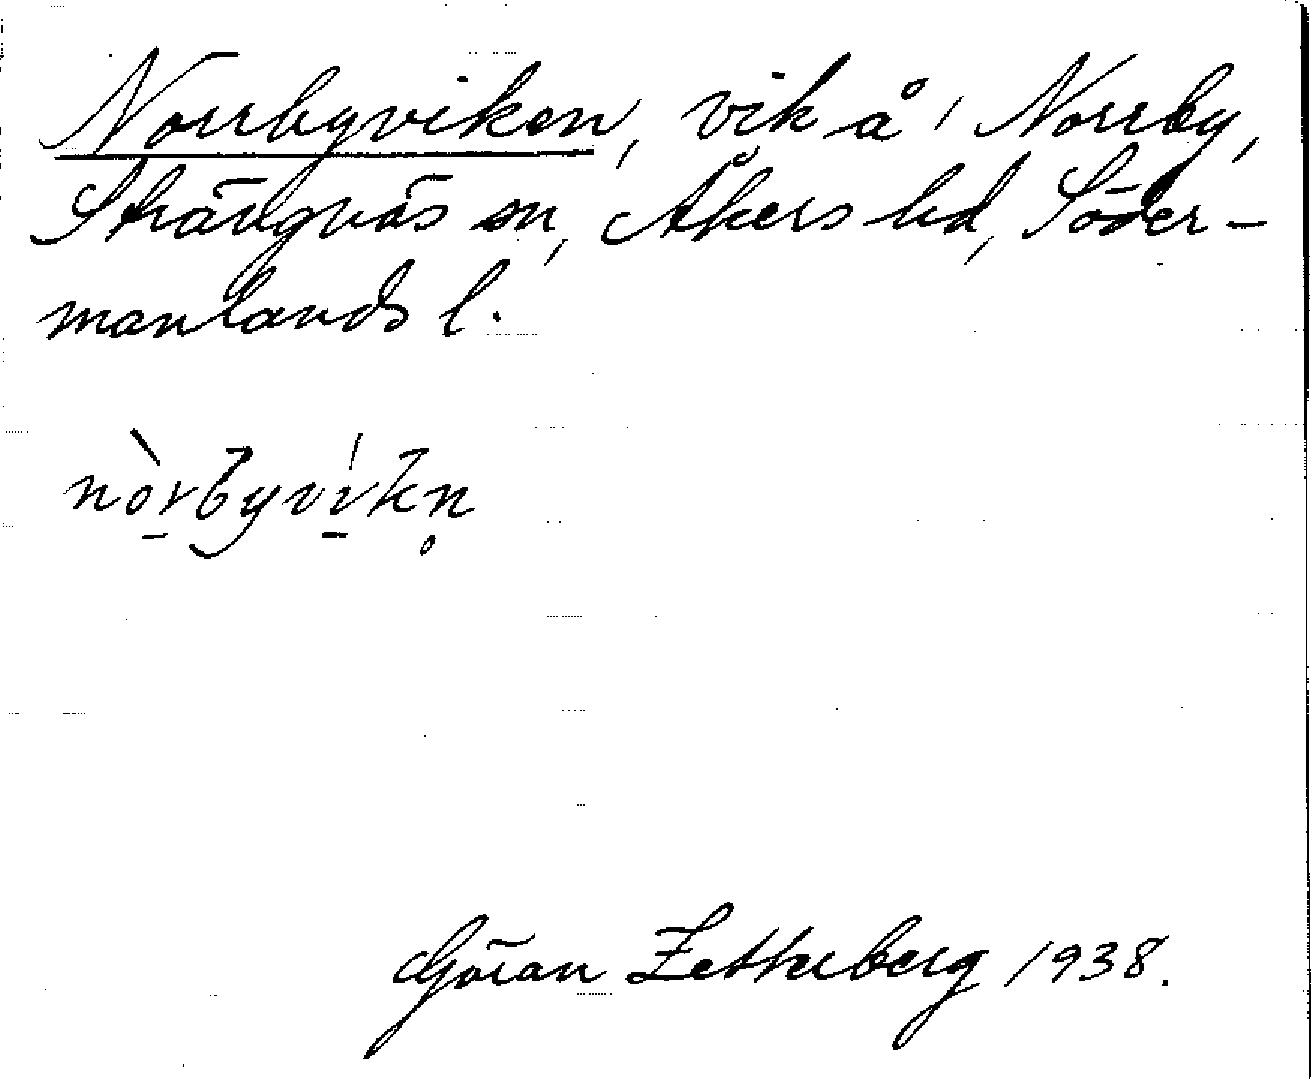 Norrbyviken, vik å Norrby,
Strängnäs sn, Åkers hd, Söder-
manlands l.
nòrbyvíkn̥
Göran Zetterberg 1938.